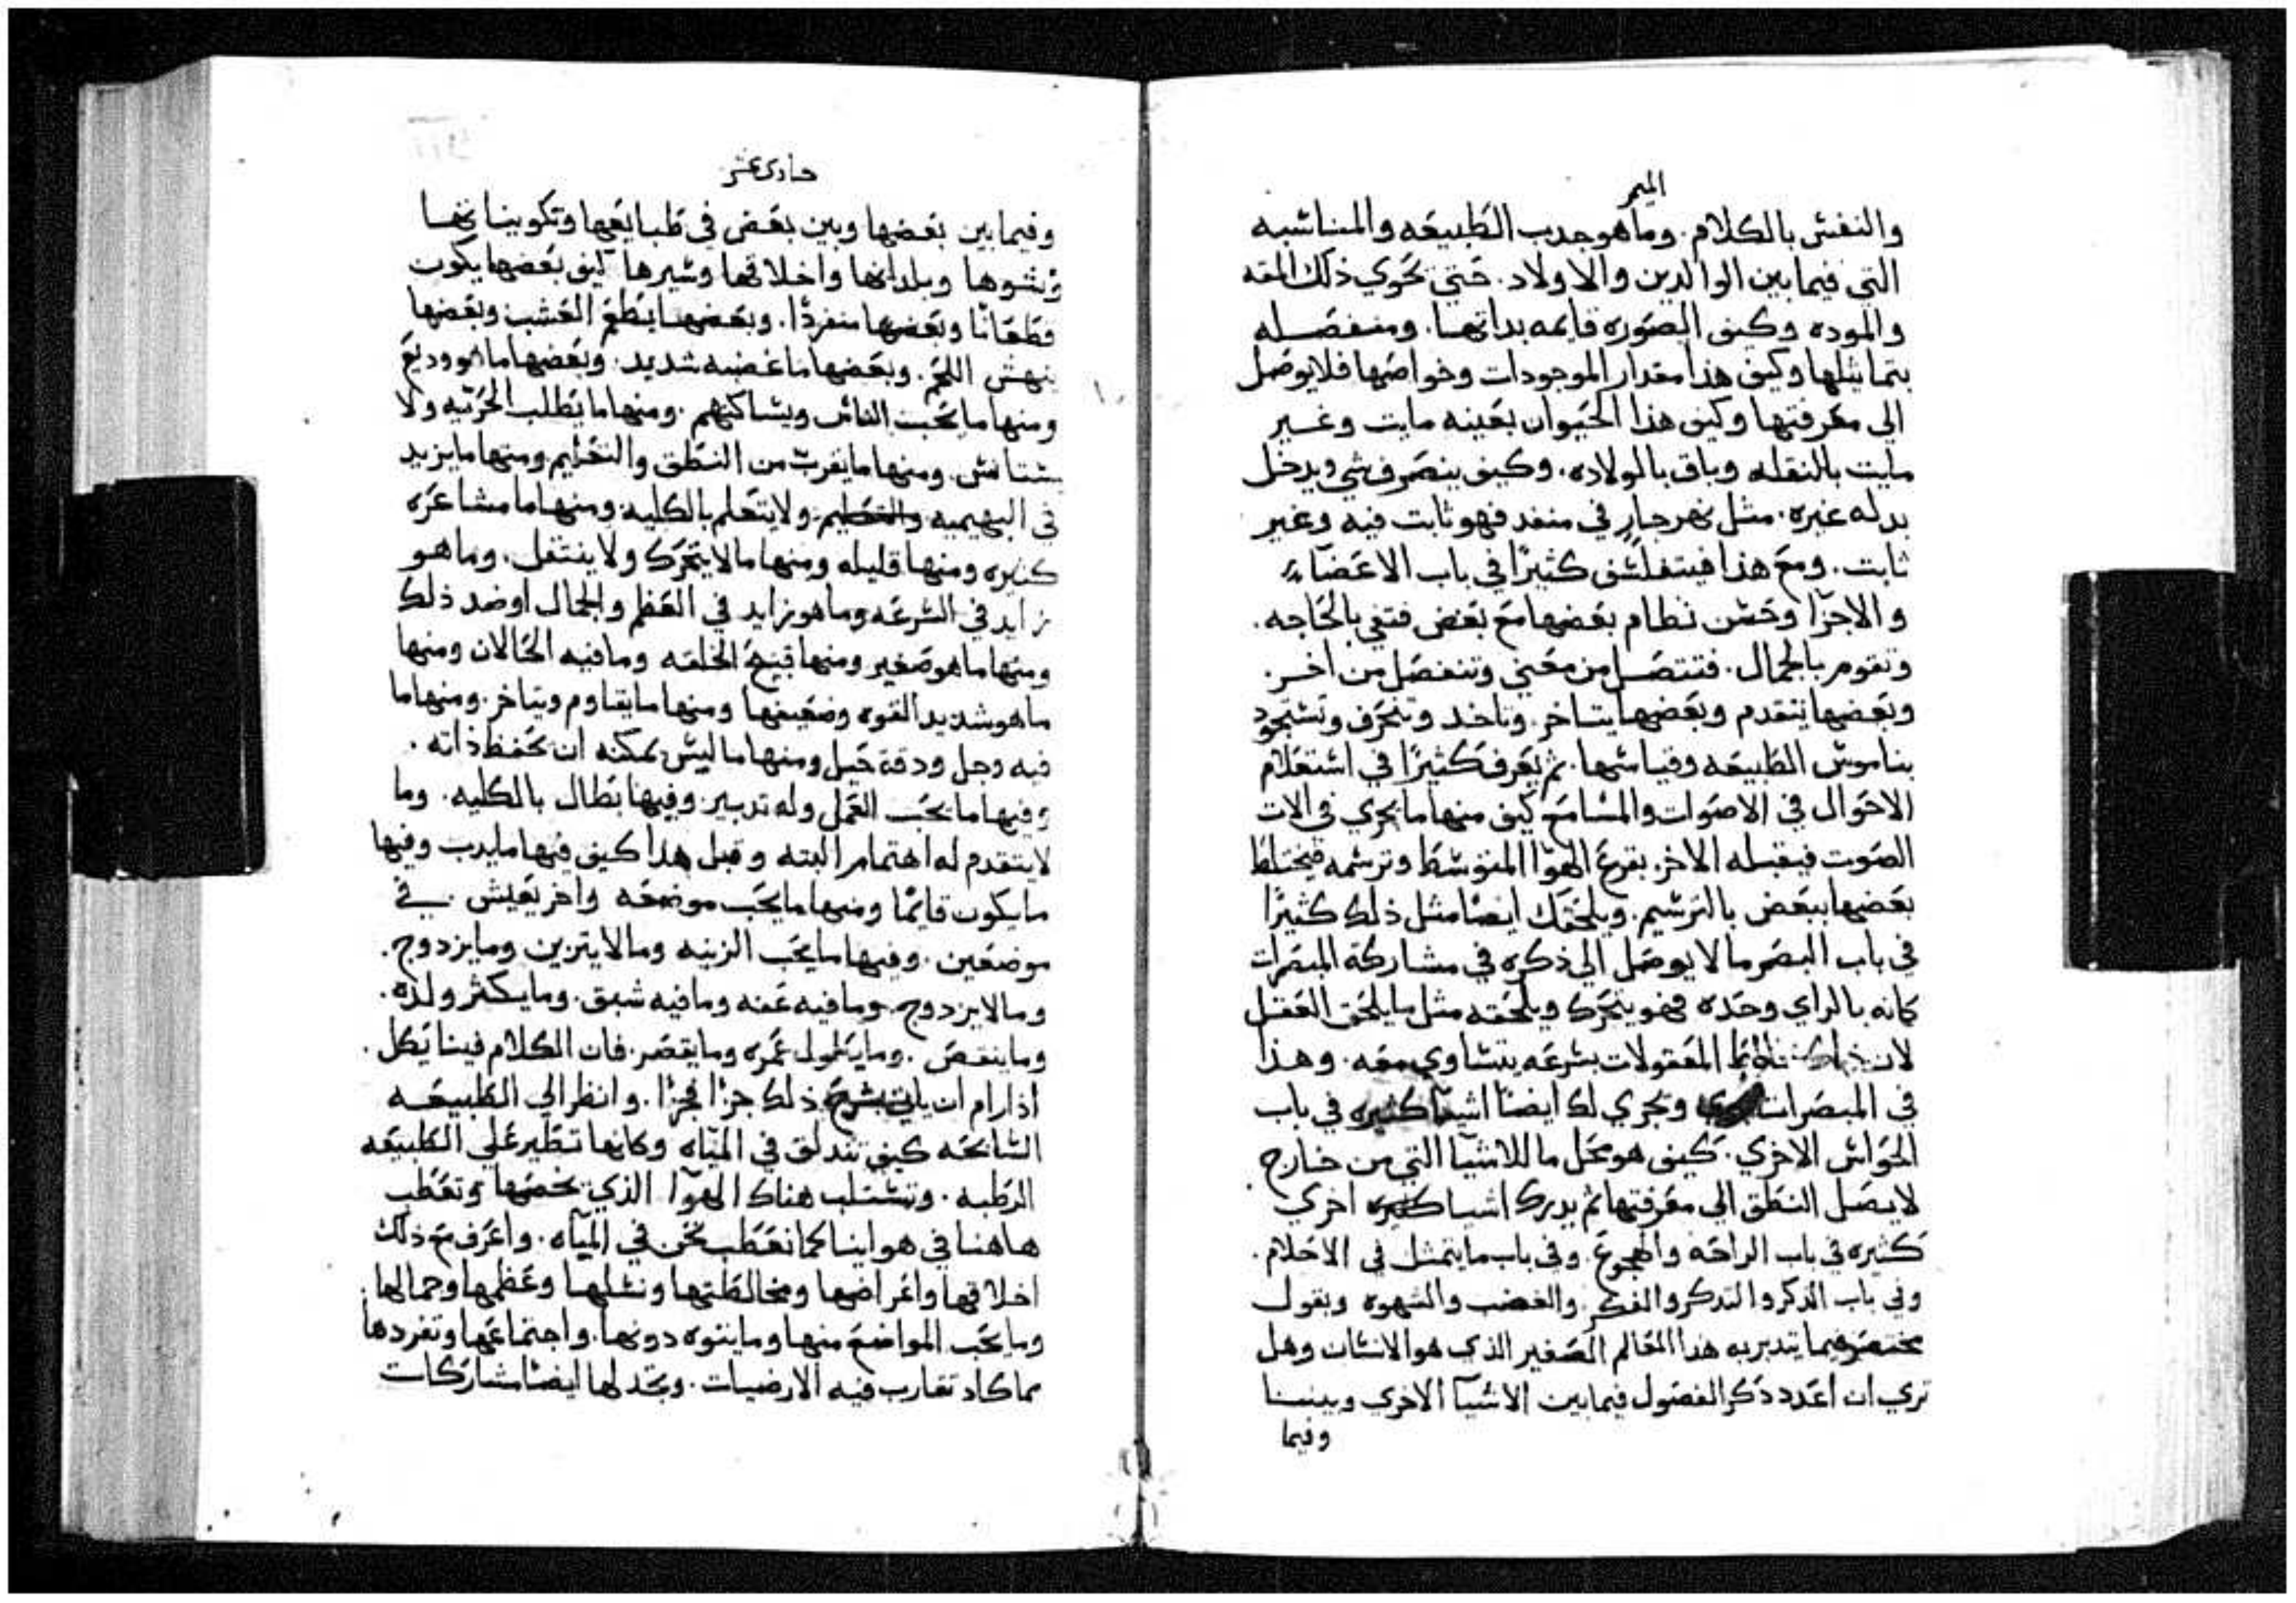 الميمر
والنفس بالكلام. وما هو جدب الطبيعه والمناسبه
التي فيما بين الوالدين والاولاد. حتي تحوي ذلك المقه
والموده وكيف الصوره قايمه بداتها. ومنفصله
بتماثيلها وكيف هذا مقدار الموجودات وخواصها فلا يوصل
الى معرفتها وكيف هذا الحيوان بعينه مايت وغير
مايت بالنقله وباق بالولاده. وكيف ينصرف شي ويدخل
بدله غيره. مثل نهر جارٍ في منفد فهو ثابت فيه وغير
ثابت. ومع هذا فيتفلسف كثيرًا في باب الاعضاء
والاجزا وحسن نظام بعضها مع بعض فتفي بالحاجه.
وتقوم بالجمال. فتتصل من معني وتنفصل من اخر.
وبعضها يتقدم وبعضها يتاخر. وتاخد وتنحرف وتستجود
بناموس الطبيعه وقياسها. ثم يعرف كثيرًا في استعلام
الاحوال في الاصوات والمسامع كيف منها ما يجري في الات
الصوت فيقبله الاخر. بقرع الهوا المتوسط وترسمه فيختلط
بعضها ببعض بالترسيم. ويلحقك ايضًا مثل ذلك كثيرًا
في باب البصر ما لا يوصل الي ذكره في مشاركة المبصرات
كانه بالراي وحده فهو يتحرك ويلحقه مثل ما يلحق العقل
لان المعقولات بسرعه يتساوي معه. وهذا
في المبصرات ويجري لك ايضًا اشيا كثيره في باب
الحواس الاخري. كيف هو محل ما للاشيا التي من خارج.
لا يصل النطق الي معرفتها ثم يدرك اشيا كثيره اخري
كثيره في باب الراحه والهجوع. وفي باب ما يتمثل في الاحلام.
وفي باب الدكر والتدكر والفكر والغضب والشهوه وبقول
مختصر فيما يتدبر به هذا العالم الصغير الذي هو الانسان وهل
تري ان اعدد ذكر الفصول فيما بين الاشيا الاخري وبيننا
وفيما
حادي عشر
وفيما بين بعضها وبين بعض في طبايعها وتكويناتها
ونشوها وبلدانها واخلاقها وسيرها كيف بعضها يكون
قطعانًا وبعضها منفردًا. وبعضها يطعم العشب وبعضها
ينهش اللحم. وبعضها ما غضبه شديد. وبعضها ما هو وديع
ومنها ما يحب الناس ويساكنهم. ومنها ما يطلب الحريه ولا
يستانس. ومنها ما يقرب من النطق والتعليم ومنها ما يزيد
في البهيميه ولا يتعلم بالكليه ومنها ما مشاعره
كثيره ومنها قليله ومنها ما لا يتحرك ولا ينتقل. وما هو
زايد في السرعه وما هو زايد في العظم والجمال او ضد ذلك
ومنها ما هو صغير ومنها قبيح الخلقه وما فيه الحالان ومنها
ما هو شديد القوه وضعيفها ومنها ما يقاوم ويتاخر. ومنها ما
فيه وجل ودقة حيل ومنها ما ليس يمكنه ان يحفظ ذاته.
وفيها ما يحب العمل وله تدبير. وفيها بطال بالكليه. وما
لا يتقدم له اهتمام البته وقبل هذا كيف فيها ما يدب وفيها
ما يكون قايمًا ومنها ما يحب موضعه واخر يعيش في
موضعين. وفيها ما يحب الزينه وما لا يتزين وما يزدوج.
وما لا يزدوج. وما فيه عفه وما فيه شبق. وما يكثر ولده.
وما ينقص. وما يطول عمره وما يقصر. فان الكلام فينا يكل.
اذا رام ان ياتي بشرح ذلك جزًا فجزًا. وانظر الي الطبيعه
السابحه كيف تندلق في المياه وكانها تطير علي الطبيعه
الرطبه. وتستلب هناك الهوا الذي يخصها وتعطب
هاهنا في هواينا كما نعطب نحن في المياه. واعرف مع ذلك
اخلاقها واعراضها ومخالطتها ونسلها وعظمها وجمالها.
وما يحب المواضع منها وما يتوه دونها. واجتماعها وتفردها
مما كاد تقارب فيه الارضيات. وتجد لها ايضًا مشاركات